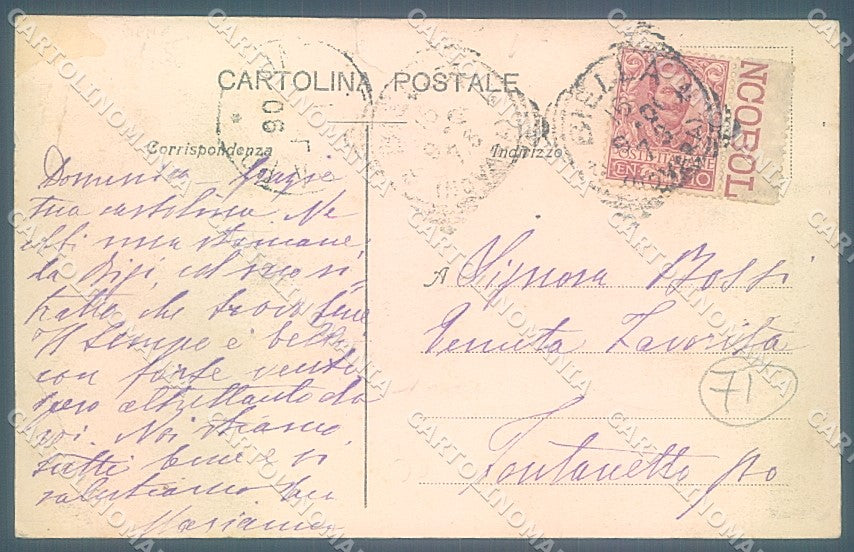 CARTOLINA POSTALE
Corrispondenza
Indirizzo
NCOBOL
BIELLA
POSTE ITALIANE
CEN. 10
06
Domenica
tua cartolina Ne
ebbi una stamane
la Gigi, col suo ri,
tratto che trovo bene
Il tempo è bello
con forte vento
pero altrettanto da
voi. Noi stiamo
tutti bene e vi
salutiamo
Marianna
A Signora Bossi
Tenuta Favorita
71
Fontanetto Po
CARTOLINOMANIA